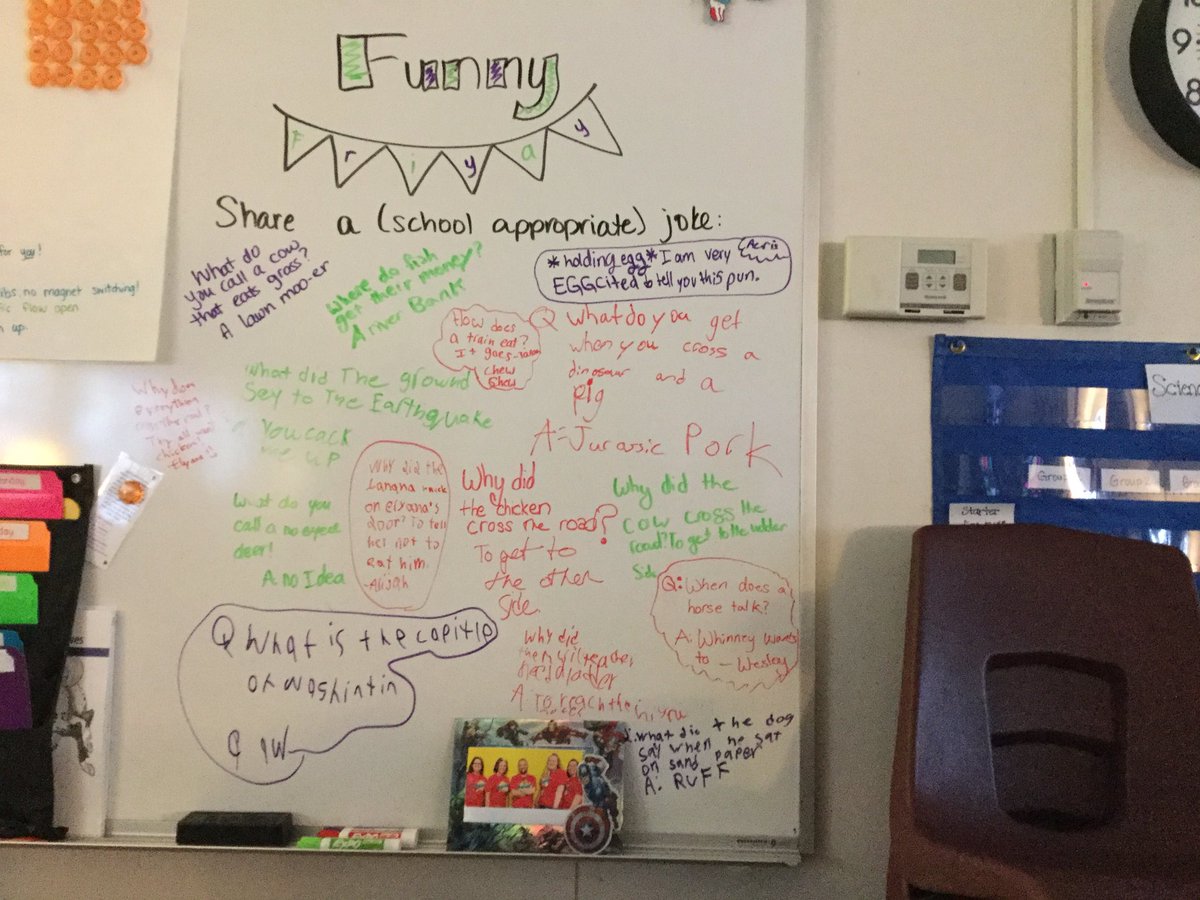 Funny
Friyay
Share a (school appropriate) joke:
for you!
no magnet switching!
flow open
up.
What do
you call a cow
that eats grass?
A lawn moo-er
Where do fish
get their money?
A river Bank
*holding egg* I am very
EGGcited to tell you this pun.
How does
a train eat?
It goes
chew
chew
Q What do you get
when you cross a
dinosaur and a
pig
A=Jurassic Pork
What did The ground
Say to The Earthquake
You cack
me up
Why
the road?
chicken!
What do you
call a no
deer!
A no Idea
Why did the
on elyana's
door? To tell
her not to
eat him.
-Alijah
Why did
the chicken
cross the road?
To get to
the other
side.
Why did the
cow cross the
road? To get to the udder
Side
Q: When does a
horse talk?
A: Whinney wants
to - Wesley
Q What is the capitle
of woshintin
W
why did
the
teacher
A To reach the
hi you
What did the dog
say when he sat
on sand paper
A. RUFF
EXPO
EXPO
9
8
Honeywell
Scien
Group 1
Group 2
Starter